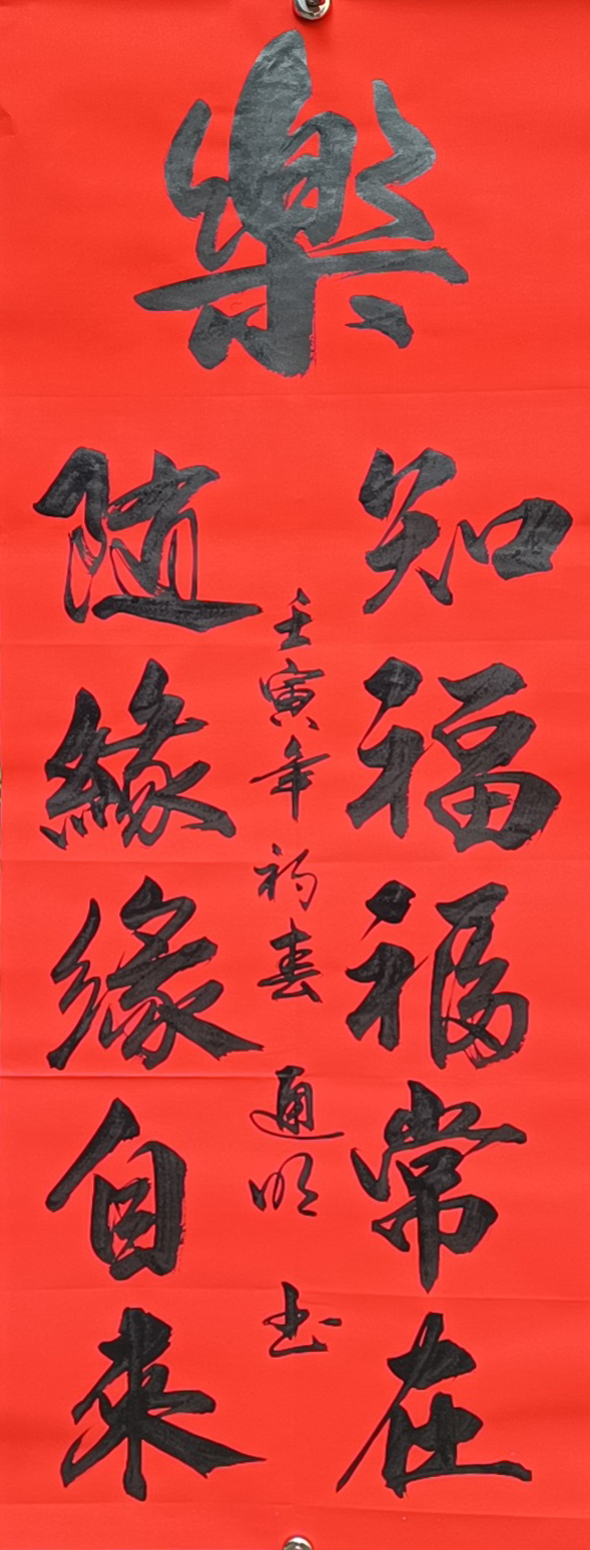 樂
知福福常在
隨緣緣自來
壬寅年初春 通明 书